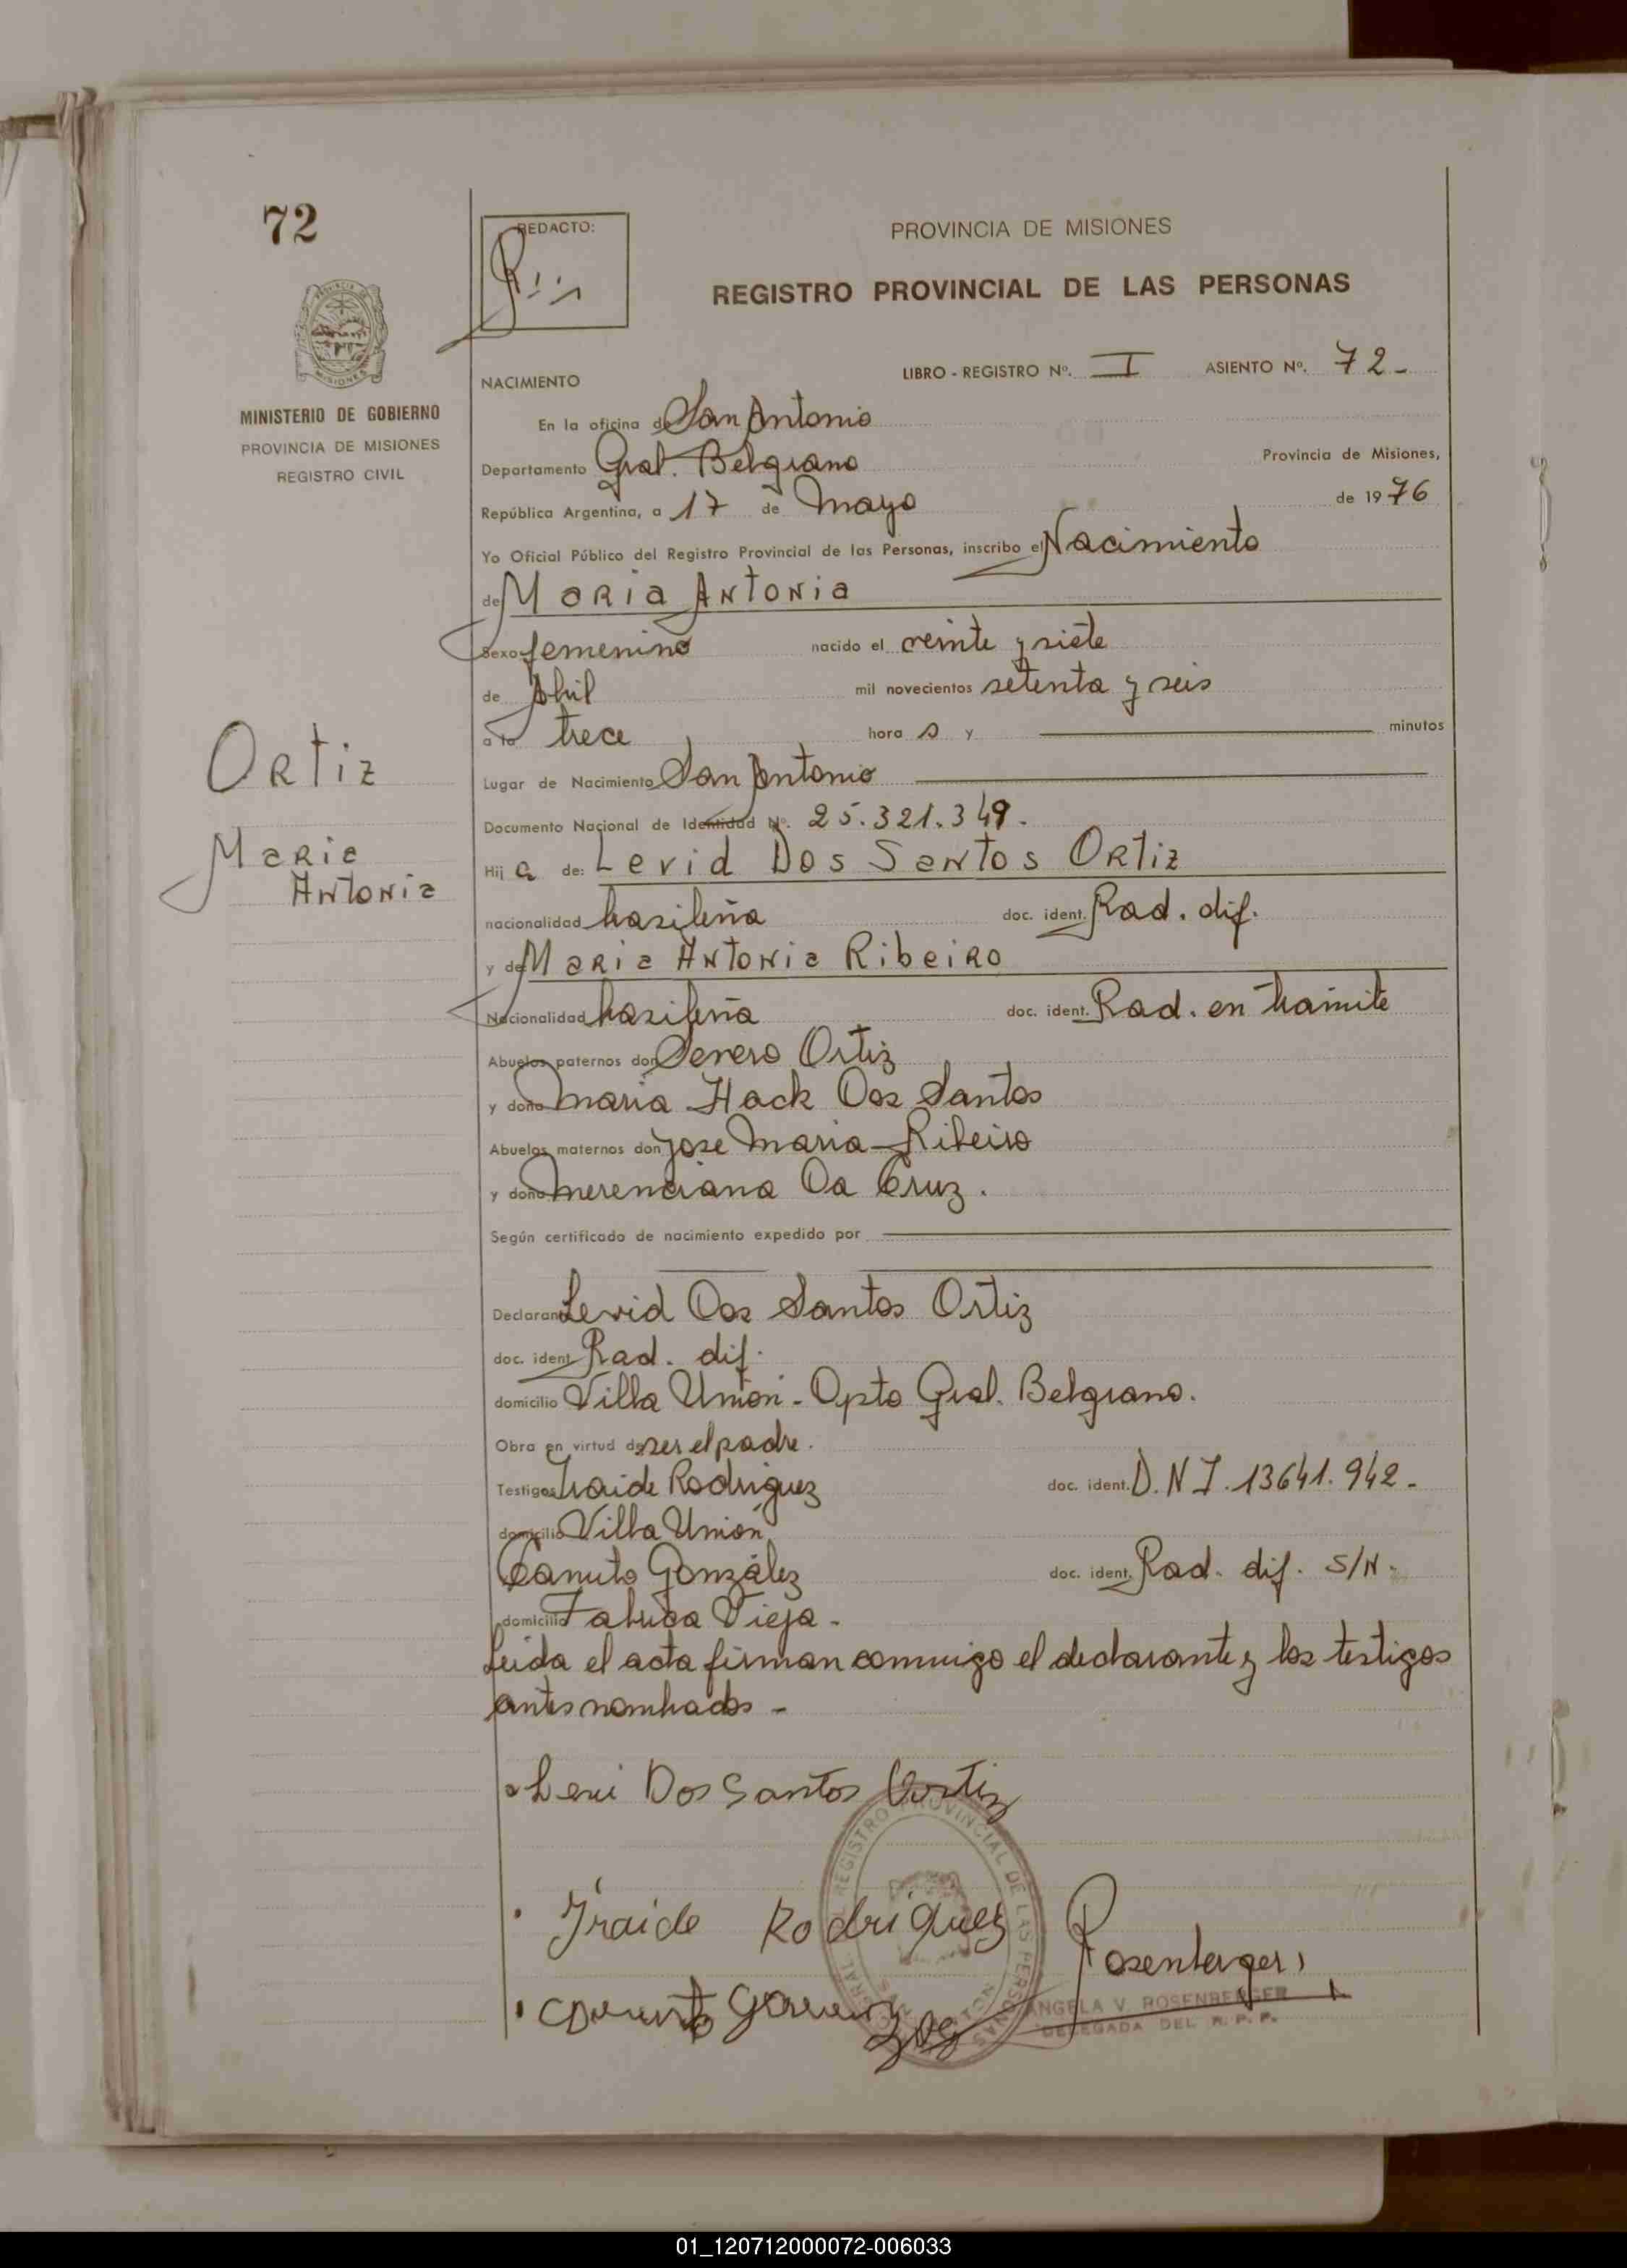 72
REDACTO:
PROVINCIA DE MISIONES
REGISTRO PROVINCIAL DE LAS PERSONAS
MINISTERIO DE GOBIERNO
PROVINCIA DE MISIONES
REGISTRO CIVIL
NACIMIENTO
LIBRO - REGISTRO Nº. I ASIENTO Nº. 72 -
En la oficina de San Antonio
Departamento Gral. Belgrano Provincia de Misiones,
República Argentina, a 17 de Mayo de 1976
Yo Oficial Público del Registro Provincial de las Personas, inscribo el Nacimiento
de Maria Antonia
Sexo femenino nacido el veinte y siete
de Abril mil novecientos setenta y seis
a la trece hora s y minutos
Lugar de Nacimiento San Antonio
Documento Nacional de Identidad Nº. 25.321.349.
Hij a de: Levid Dos Santos Ortiz
nacionalidad brasileña doc. ident. Rad. dif.
y de Maria Antonia Ribeiro
Nacionalidad brasileña doc. ident. Rad. en tramite
Abuelos paternos don Severo Ortiz
y doña Maria Hack Dos Santos
Abuelos maternos don Jose Maria Ribeiro
y doña Merenciana Da Cruz.
Según certificado de nacimiento expedido por
Ortiz
Maria
Antonia
Declarante Levid Dos Santos Ortiz
doc. ident. Rad. dif.
domicilio Villa Unión - Dpto Gral. Belgrano.
Obra en virtud de ser el padre.
Testigos Iraide Rodriguez doc. ident. D.N.I. 13641.942 -
domicilio Villa Unión
Canuto González doc. ident. Rad. dif. S/N.
domicilio Tabuca Vieja -
Leida el acta firman conmigo el declarante y los testigos
antes nombrados -
Levi Dos Santos Ortiz
Iraide Rodriguez
Rosenberger
REGISTRO PROVINCIAL DE LAS PERSONAS
ANGELA V. ROSENBERGER
DELEGADA DEL R. P. P.
01_120712000072-006033